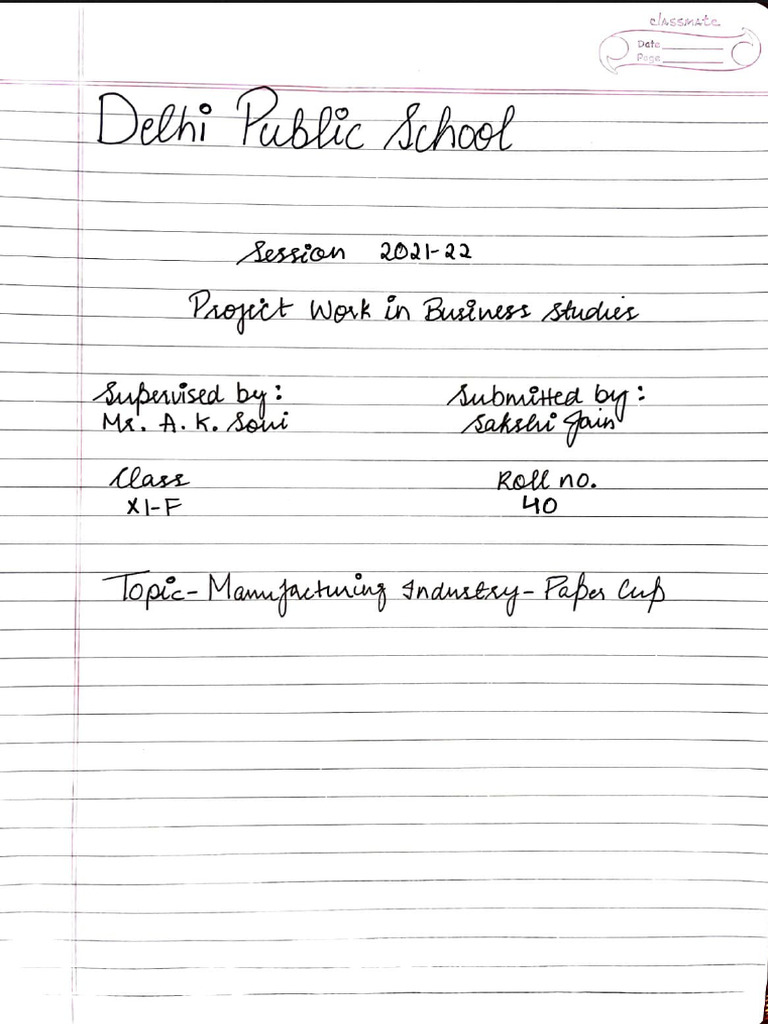 classmate
Date
Page
Delhi Public School
Session 2021-22
Project Work in Business Studies
Supervised by: Submitted by:
Mr. A. K. Soni Sakshi Jain
Class Roll no.
XI-F 40
Topic- Manufacturing Industry- Paper Cup